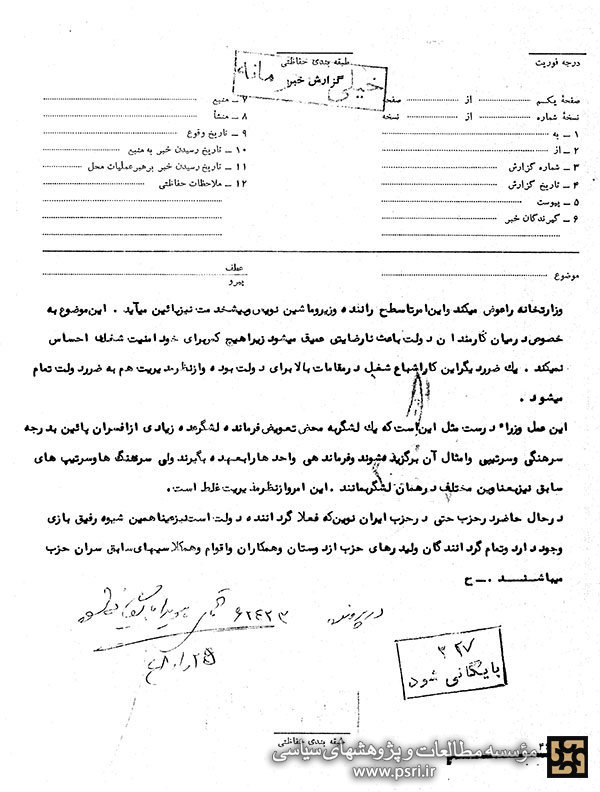 درجه فوریت
طبقه بندی حفاظتی
گزارش خبر
خیلی
صفحهٔ یکم از صفحه
نسخهٔ شماره از نسخه
۱ ــ به
۲ ــ از
۳ ــ شماره گزارش
۴ ــ تاریخ گزارش
۵ ــ پیوست
۶ ــ گیرندگان خبر
۷ ــ منبع
۸ ــ منشأ
۹ ــ تاریخ وقوع
۱۰ ــ تاریخ رسیدن خبر به منبع
۱۱ ــ تاریخ رسیدن خبر برهبر عملیات محل
۱۲ ــ ملاحظات حفاظتی
موضوع
عطف
پیرو
وزارتخانه راعوض میکند و این امر تا سطح راننده وزیر و ماشین نویس و پیشخدمت نیز پائین میآید . این موضوع به
خصوص در میان کارمندان دولت باعث نارضایتی عمیق میشود زیرا هیچ کس برای خود امنیت شغلی احساس
نمیکند . یک ضرر دیگر این کار اشباع شغل در مقامات بالا برای دولت بوده و از نظر مدیریت هم به ضرر دولت تمام
میشود .
این عمل وزراء درست مثل این است که یک لشگر به محض تعویض فرمانده لشگر عده زیادی از افسران پائین به درجه
سرهنگی و سرتیپی و امثال آن برگزیده شوند و فرماندهی واحدها را بعهده بگیرند ولی سرهنگ ها و سرتیپ های
سابق نیز بعناوین مختلف در همان لشگر بمانند . این امر از نظر مدیریت غلط است .
در حال حاضر در حزب حتی در حزب ایران نوین که فعلا گرداننده دولت است نیز عینا همین شیوه رفیق بازی
وجود دارد و تمام گردانندگان و لیدرهای حزب از دوستان و همکاران و اقوام و همکلاسیهای سابق سران حزب
میباشند . ــ ح
در پرونده ۶۲۴۲۳ آقای هویدا بایگانی
۳۲۷
بایگانی شود
طبقه بندی حفاظتی
مؤسسه مطالعات و پژوهشهای سیاسی
www.psri.ir